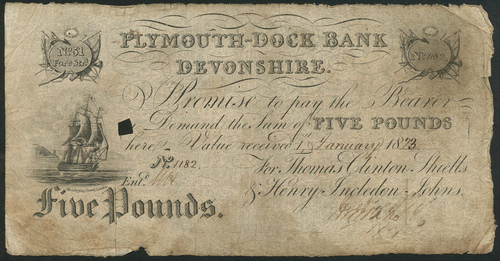 No. 51
Fore Str.
PLYMOUTH-DOCK BANK
DEVONSHIRE.
I Promise to pay the Bearer on
Demand the Sum of FIVE POUNDS
here Value received 1 January 1823.
No. 1182.
For Thomas Clinton Shiells
& Henry Incledon Johns.
Entd.
Five Pounds.